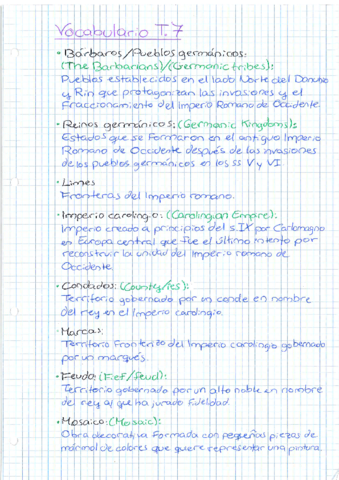 Vocabulario T.7
• Bárbaros/Pueblos germánicos:
(The Barbarians)/(Germanic tribes):
Pueblos establecidos en el lado Norte del Danubio
y Rin que protagonizan las invasiones y el
Fraccionamiento del Imperio Romano de Occidente.
• Reinos germánicos: (Germanic Kingdoms):
Estados que se Formaron en el antiguo Imperio
Romano de Occidente después de las invasiones
de los pueblos germánicos en los ss V y VI.
• Limes
Fronteras del Imperio romano.
• Imperio carolingio: (Carolingian Empire):
Imperio creado a principios del s.IX por Carlomagno
en Europa central que fue el último intento por
reconstruir la unidad del Imperio romano de
Occidente.
• Condados: (County/ies):
Territorio gobernado por un conde en nombre
del rey en el Imperio carolingio.
• Marcas:
Territorio Fronterizo del Imperio carolingio gobernado
por un marqués.
• Feudo: (Fief/Feud):
Territorio gobernado por un alto noble en nombre
del rey al que ha jurado Fidelidad.
• Mosaico: (Mosaic):
Obra decorativa Formada con pequeñas piezas de
mármol de colores que quiere representar una pintura.